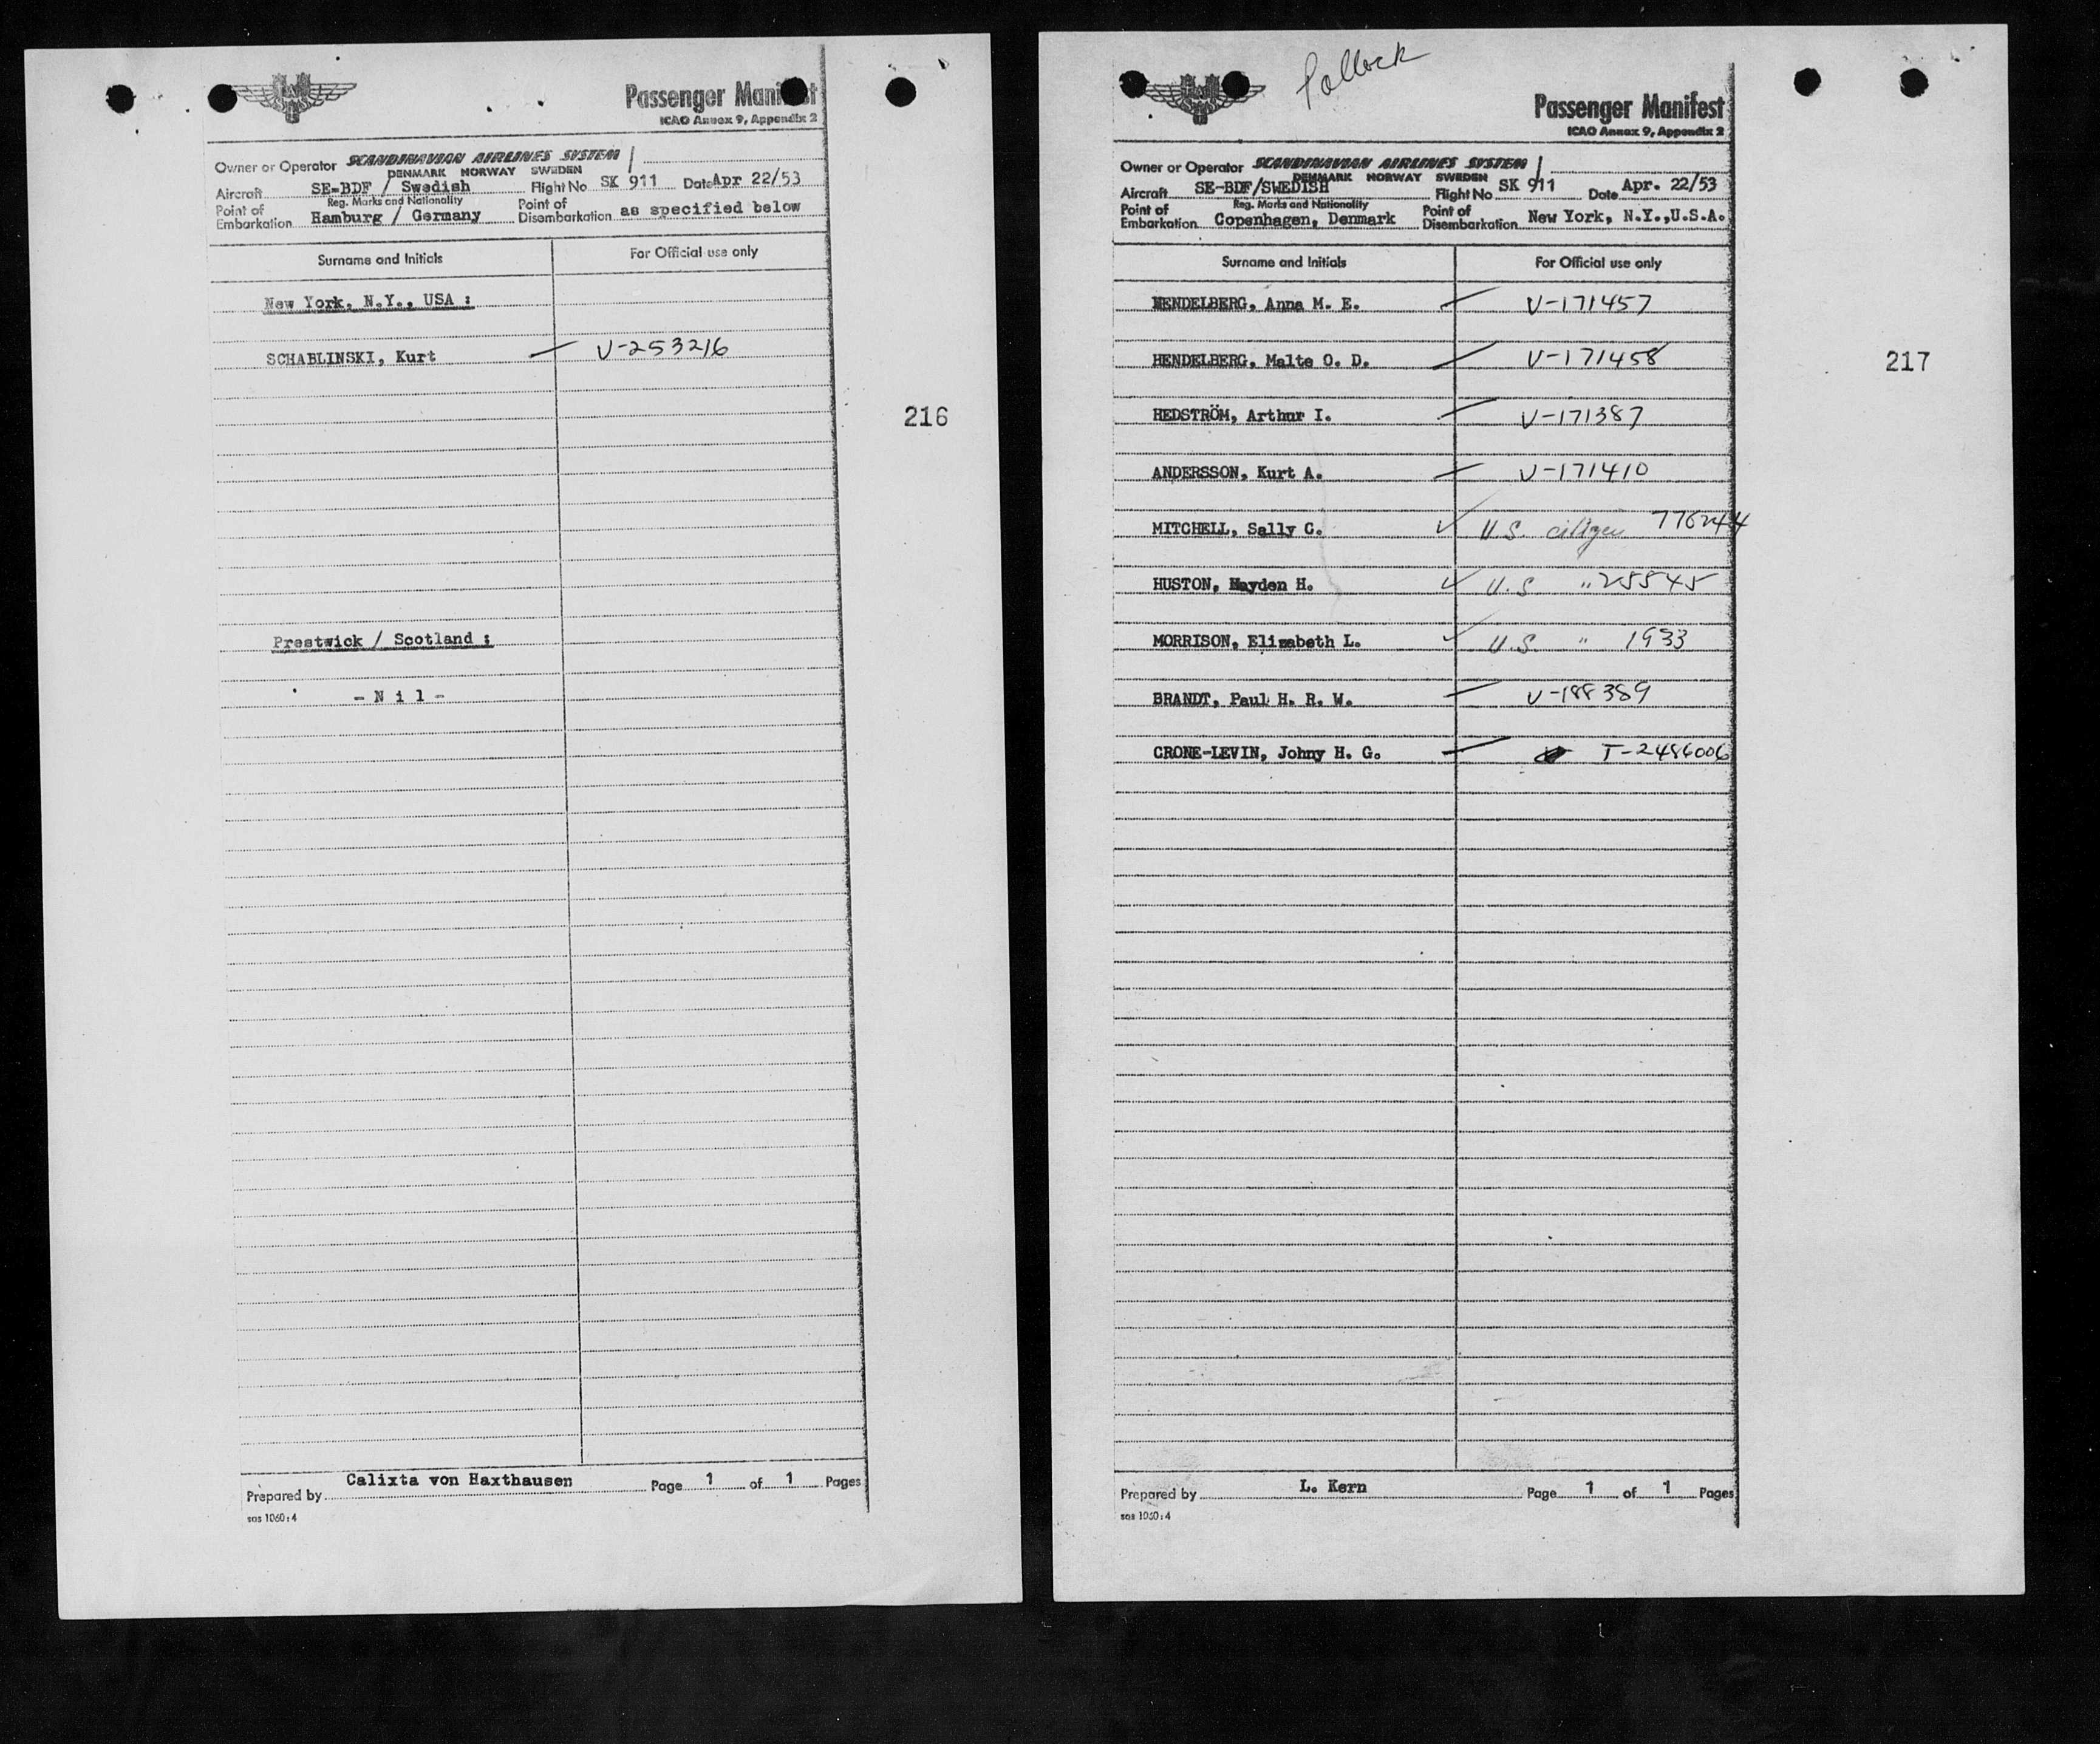 Passenger Manifest
ICAO Annex 9, Appendix 2
Owner or Operator SCANDINAVIAN AIRLINES SYSTEM
DENMARK NORWAY SWEDEN
Aircraft SE-BDF / Swedish Flight No SK 911 Date Apr 22/53
Reg. Marks and Nationality
Point of Embarkation Hamburg / Germany Point of Disembarkation as specified below
Surname and Initials For Official use only
New York, N.Y., USA :
SCHABLINSKI, Kurt V-253216
216
Prestwick / Scotland :
- N i l -
Prepared by Calixta von Haxthausen Page 1 of 1 Pages
sas 1060:4
Pollock
Passenger Manifest
ICAO Annex 9, Appendix 2
Owner or Operator SCANDINAVIAN AIRLINES SYSTEM
DENMARK NORWAY SWEDEN
Aircraft SE-BDF/SWEDISH Flight No SK 911 Date Apr. 22/53
Reg. Marks and Nationality
Point of Embarkation Copenhagen, Denmark Point of Disembarkation New York, N.Y.,U.S.A.
Surname and Initials For Official use only
HENDELBERG, Anna M. E. V-171457
HENDELBERG, Malte O. D. V-171458
217
HEDSTRÖM, Arthur I. V-171387
ANDERSSON, Kurt A. V-171410
MITCHELL, Sally C. U.S. citizen 776244
HUSTON, Hayden H. U.S " 25545
MORRISON, Elizabeth L. U.S. " 1933
BRANDT, Paul H. R. W. V-188389
CRONE-LEVIN, Johny H. G. T-2486006
Prepared by L. Kern Page 1 of 1 Pages
sas 1060:4